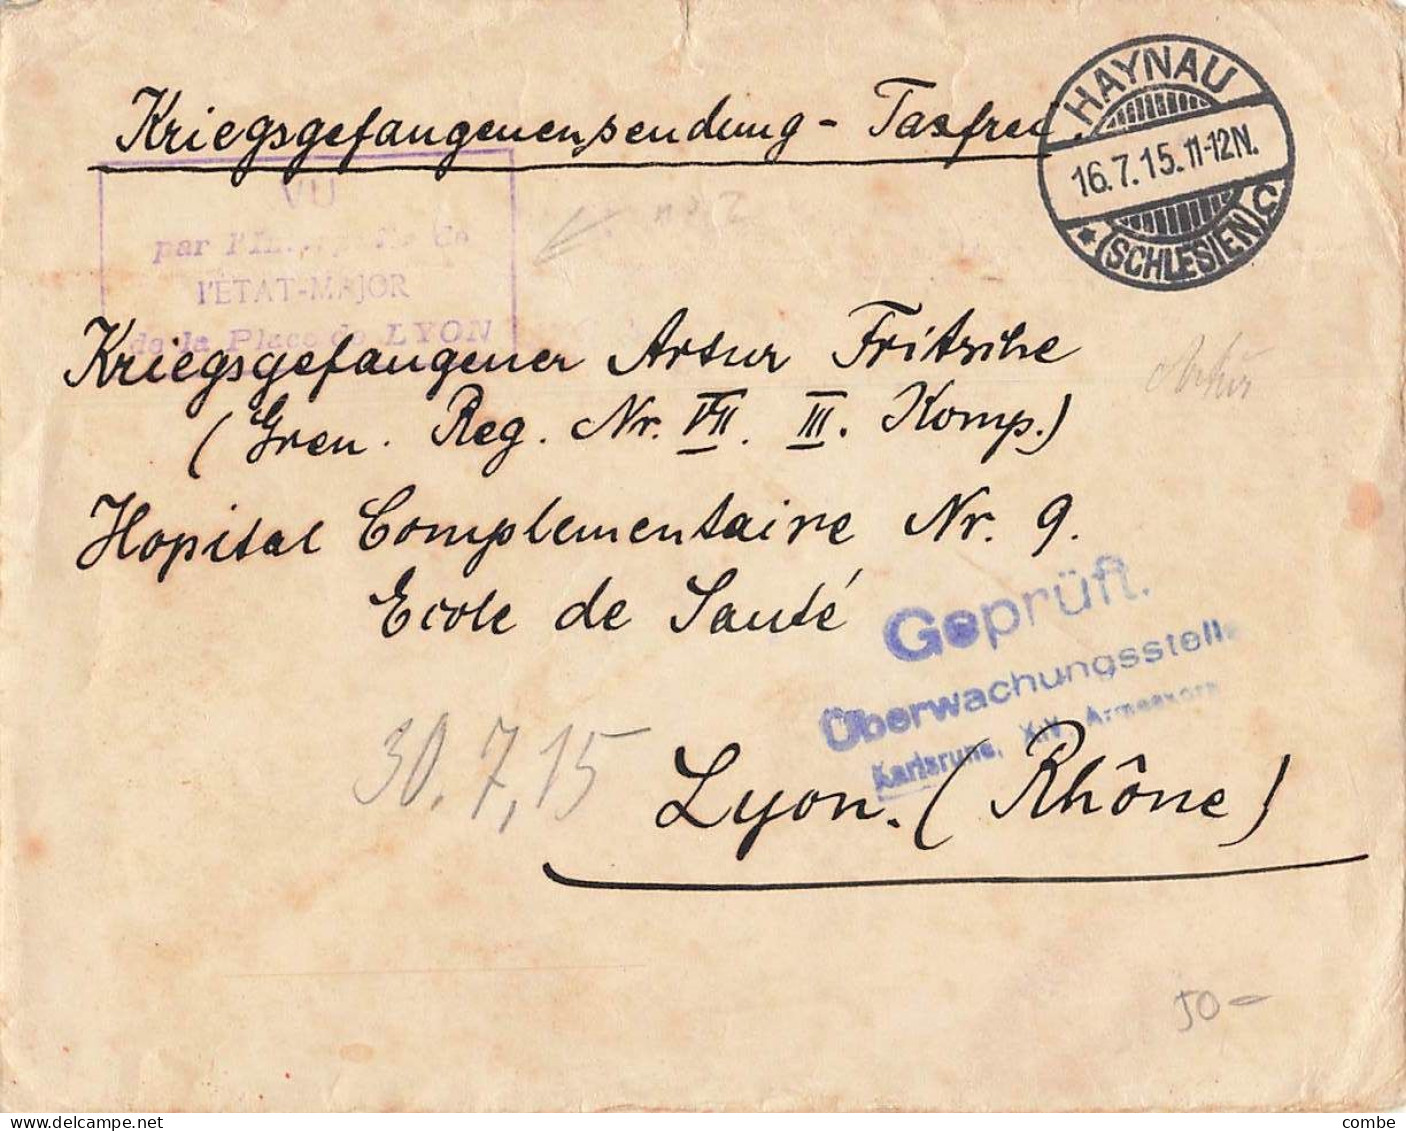 Kriegsgefangenensendung - Taxfrei.
HAYNAU
16.7.15.11-12N.
* (SCHLESIEN) C
VU
par l'In de
l'ÉTAT-MAJOR
de la Place de LYON
No 2
Kriegsgefangener Artur Fritsche
Artur
(Gren. Reg. Nr. VII. III. Komp.)
Hopital Complementaire Nr. 9.
Ecole de Santé
Geprüft.
Überwachungsstelle
Karlsruhe, XIV. Armeekorps
30.7.15
Lyon. (Rhône)
50-
combe